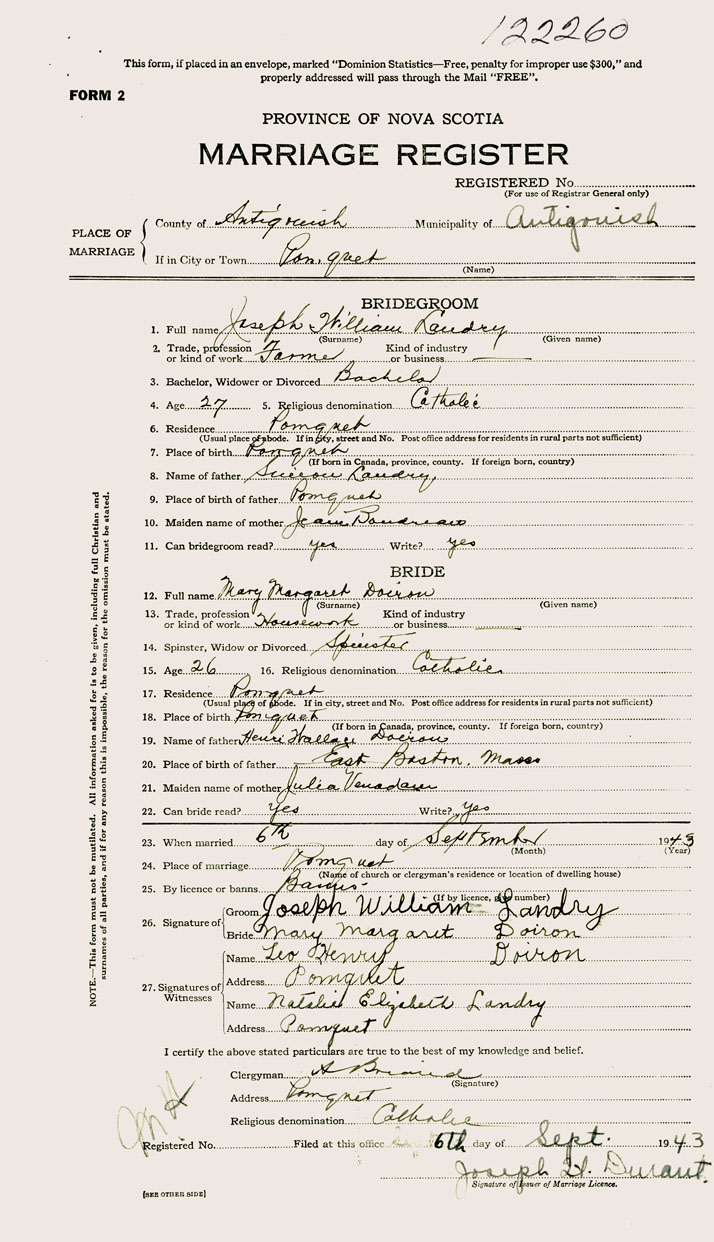 122260
This form, if placed in an envelope, marked "Dominion Statistics—Free, penalty for improper use $300," and
properly addressed will pass through the Mail "FREE".
FORM 2
PROVINCE OF NOVA SCOTIA
MARRIAGE REGISTER
REGISTERED No.
(For use of Registrar General only)
PLACE OF MARRIAGE
County of Antigonish Municipality of Antigonish
If in City or Town Pomquet
(Name)
BRIDEGROOM
1. Full name Joseph William Landry
(Surname) (Given name)
2. Trade, profession or kind of work Farmer Kind of industry or business
3. Bachelor, Widower or Divorced Bachelor
4. Age 27 5. Religious denomination Catholic
6. Residence Pomquet
(Usual place of abode. If in city, street and No. Post office address for residents in rural parts not sufficient)
7. Place of birth Pomquet
(If born in Canada, province, county. If foreign born, country)
8. Name of father Landry
9. Place of birth of father Pomquet
10. Maiden name of mother Boudreau
11. Can bridegroom read? yes Write? yes
BRIDE
12. Full name Mary Margaret Doiron
(Surname) (Given name)
13. Trade, profession or kind of work Housework Kind of industry or business
14. Spinster, Widow or Divorced Spinster
15. Age 26 16. Religious denomination Catholic
17. Residence Pomquet
(Usual place of abode. If in city, street and No. Post office address for residents in rural parts not sufficient)
18. Place of birth Pomquet
(If born in Canada, province, county. If foreign born, country)
19. Name of father Henri Wallace Doiron
20. Place of birth of father East Boston, Mass
21. Maiden name of mother Julia
22. Can bride read? Yes Write? Yes
23. When married 6th day of September 1943
(Month) (Year)
24. Place of marriage Pomquet
(Name of church or clergyman's residence or location of dwelling house)
25. By licence or banns Banns
(If by licence, give number)
26. Signature of
Groom Joseph William Landry
Bride Mary Margaret Doiron
27. Signatures of Witnesses
Name Leo Henry Doiron
Address Pomquet
Name Natalie Elizabeth Landry
Address Pomquet
I certify the above stated particulars are true to the best of my knowledge and belief.
Clergyman A Briand
(Signature)
Address Pomquet
Religious denomination Catholic
Registered No. Filed at this office 6th day of Sept. 1943
Joseph H. Durant.
Signature of Issuer of Marriage Licence.
[SEE OTHER SIDE]
NOTE.—This form must not be mutilated. All information asked for is to be given, including full Christian and
surnames of all parties, and if for any reason this is impossible, the reason for the omission must be stated.